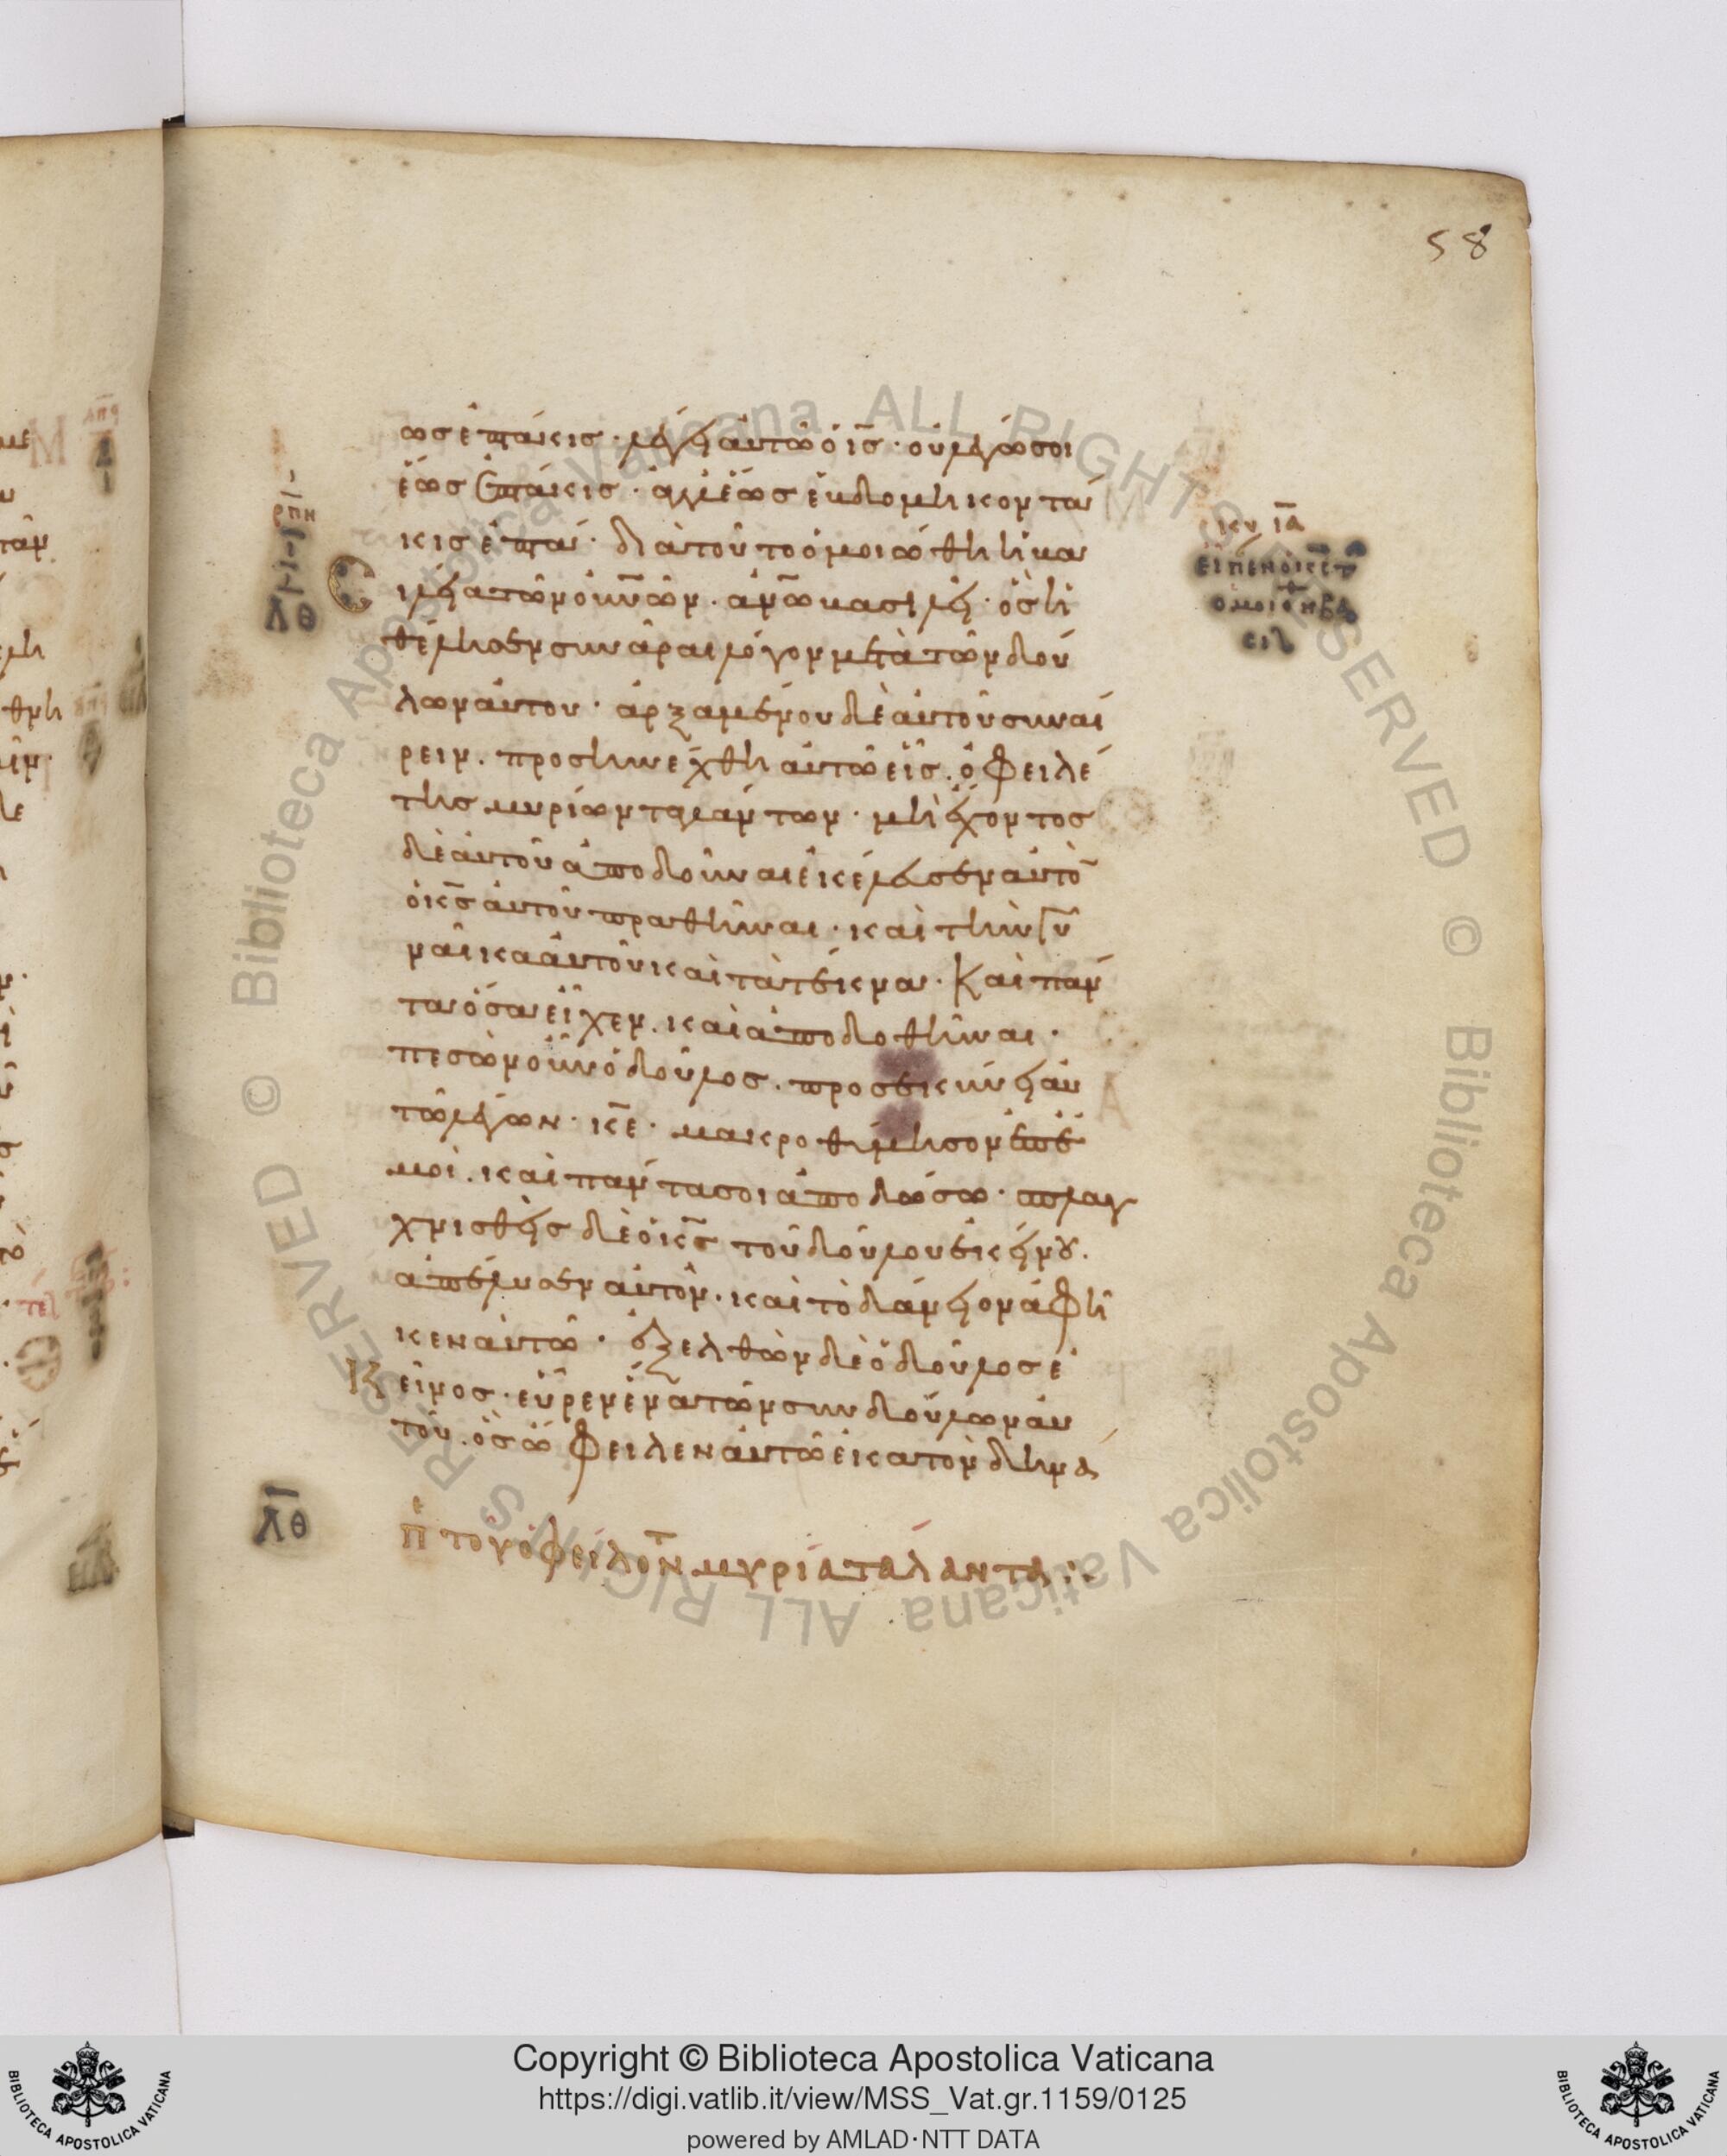 58
ωσ ἑπτάκισ· λέγει αυτῶ ὁ ι̅ς̅· οὐ λέγω σοι
ἕωσ ἑπτάκισ· ἀλλ' ἕωσ ἑβδομηκοντά
κισ ἑπτά· διὰ τοῦτο ὁμοιώθη ἡ βα
σιλεία τῶν ου̅ν̅ων· ἀν̅ω̅ βασιλεῖ· ὃσ ἠ
θέλησεν συνᾶραι λόγον μετὰ τῶν δού
λων αυτοῦ· ἀρξαμένου δὲ αυτοῦ συναί
ρειν. προσηνέχθη αυτῶ εἷσ. ὀφειλέ
τησ μυρίων ταλάντων· μὴ ἔχοντοσ
δὲ αυτοῦ ἀποδοῦναι ἐκέλευσεν αυτὸ̅
ὁ κ̅ς̅ αυτοῦ πραθῆναι· καὶ τὴν γυ
ναῖκα αυτοῦ καὶ τὰ τέκνα· Καὶ πάν
τα ὅσα εἶχεν. καὶ ἀποδοθῆναι·
πεσὼν οὖν ὁ δοῦλοσ. προσεκύνει αυ
τῶ λέγων· κ̅ε̅· μακροθύμησον ἐπ' ἐ
μοὶ. καὶ πάντα σοι ἀποδώσω· σπλαγ
χνισθεὶσ δὲ ὁ κ̅ς̅ τοῦ δούλου ἐκείνου.
ἀπέλυσεν αυτὸν. καὶ τὸ δάνειον ἀφῆ
κεν αυτῶ· ἐξελθὼν δὲ ὁ δοῦλοσ ἐ
κεῖνοσ· εὗρεν ἕνα τῶν συνδούλων αυ
τοῦ. ὃσ ὤφειλεν αυτῶ ἑκατὸν δηνά
ρπη
λθ
κυ ι̅α̅
λθ
π τοῦ ὀφείλοντ μυρία τάλαντα:
Copyright © Biblioteca Apostolica Vaticana
https://digi.vatlib.it/view/MSS_Vat.gr.1159/0125
powered by AMLAD·NTT DATA
BIBLIOTECA APOSTOLICA VATICANA
BIBLIOTECA APOSTOLICA VATICANA
Biblioteca Apostolica Vaticana ALL RIGHTS RESERVED © Biblioteca Apostolica Vaticana ALL RIGHTS RESERVED ©